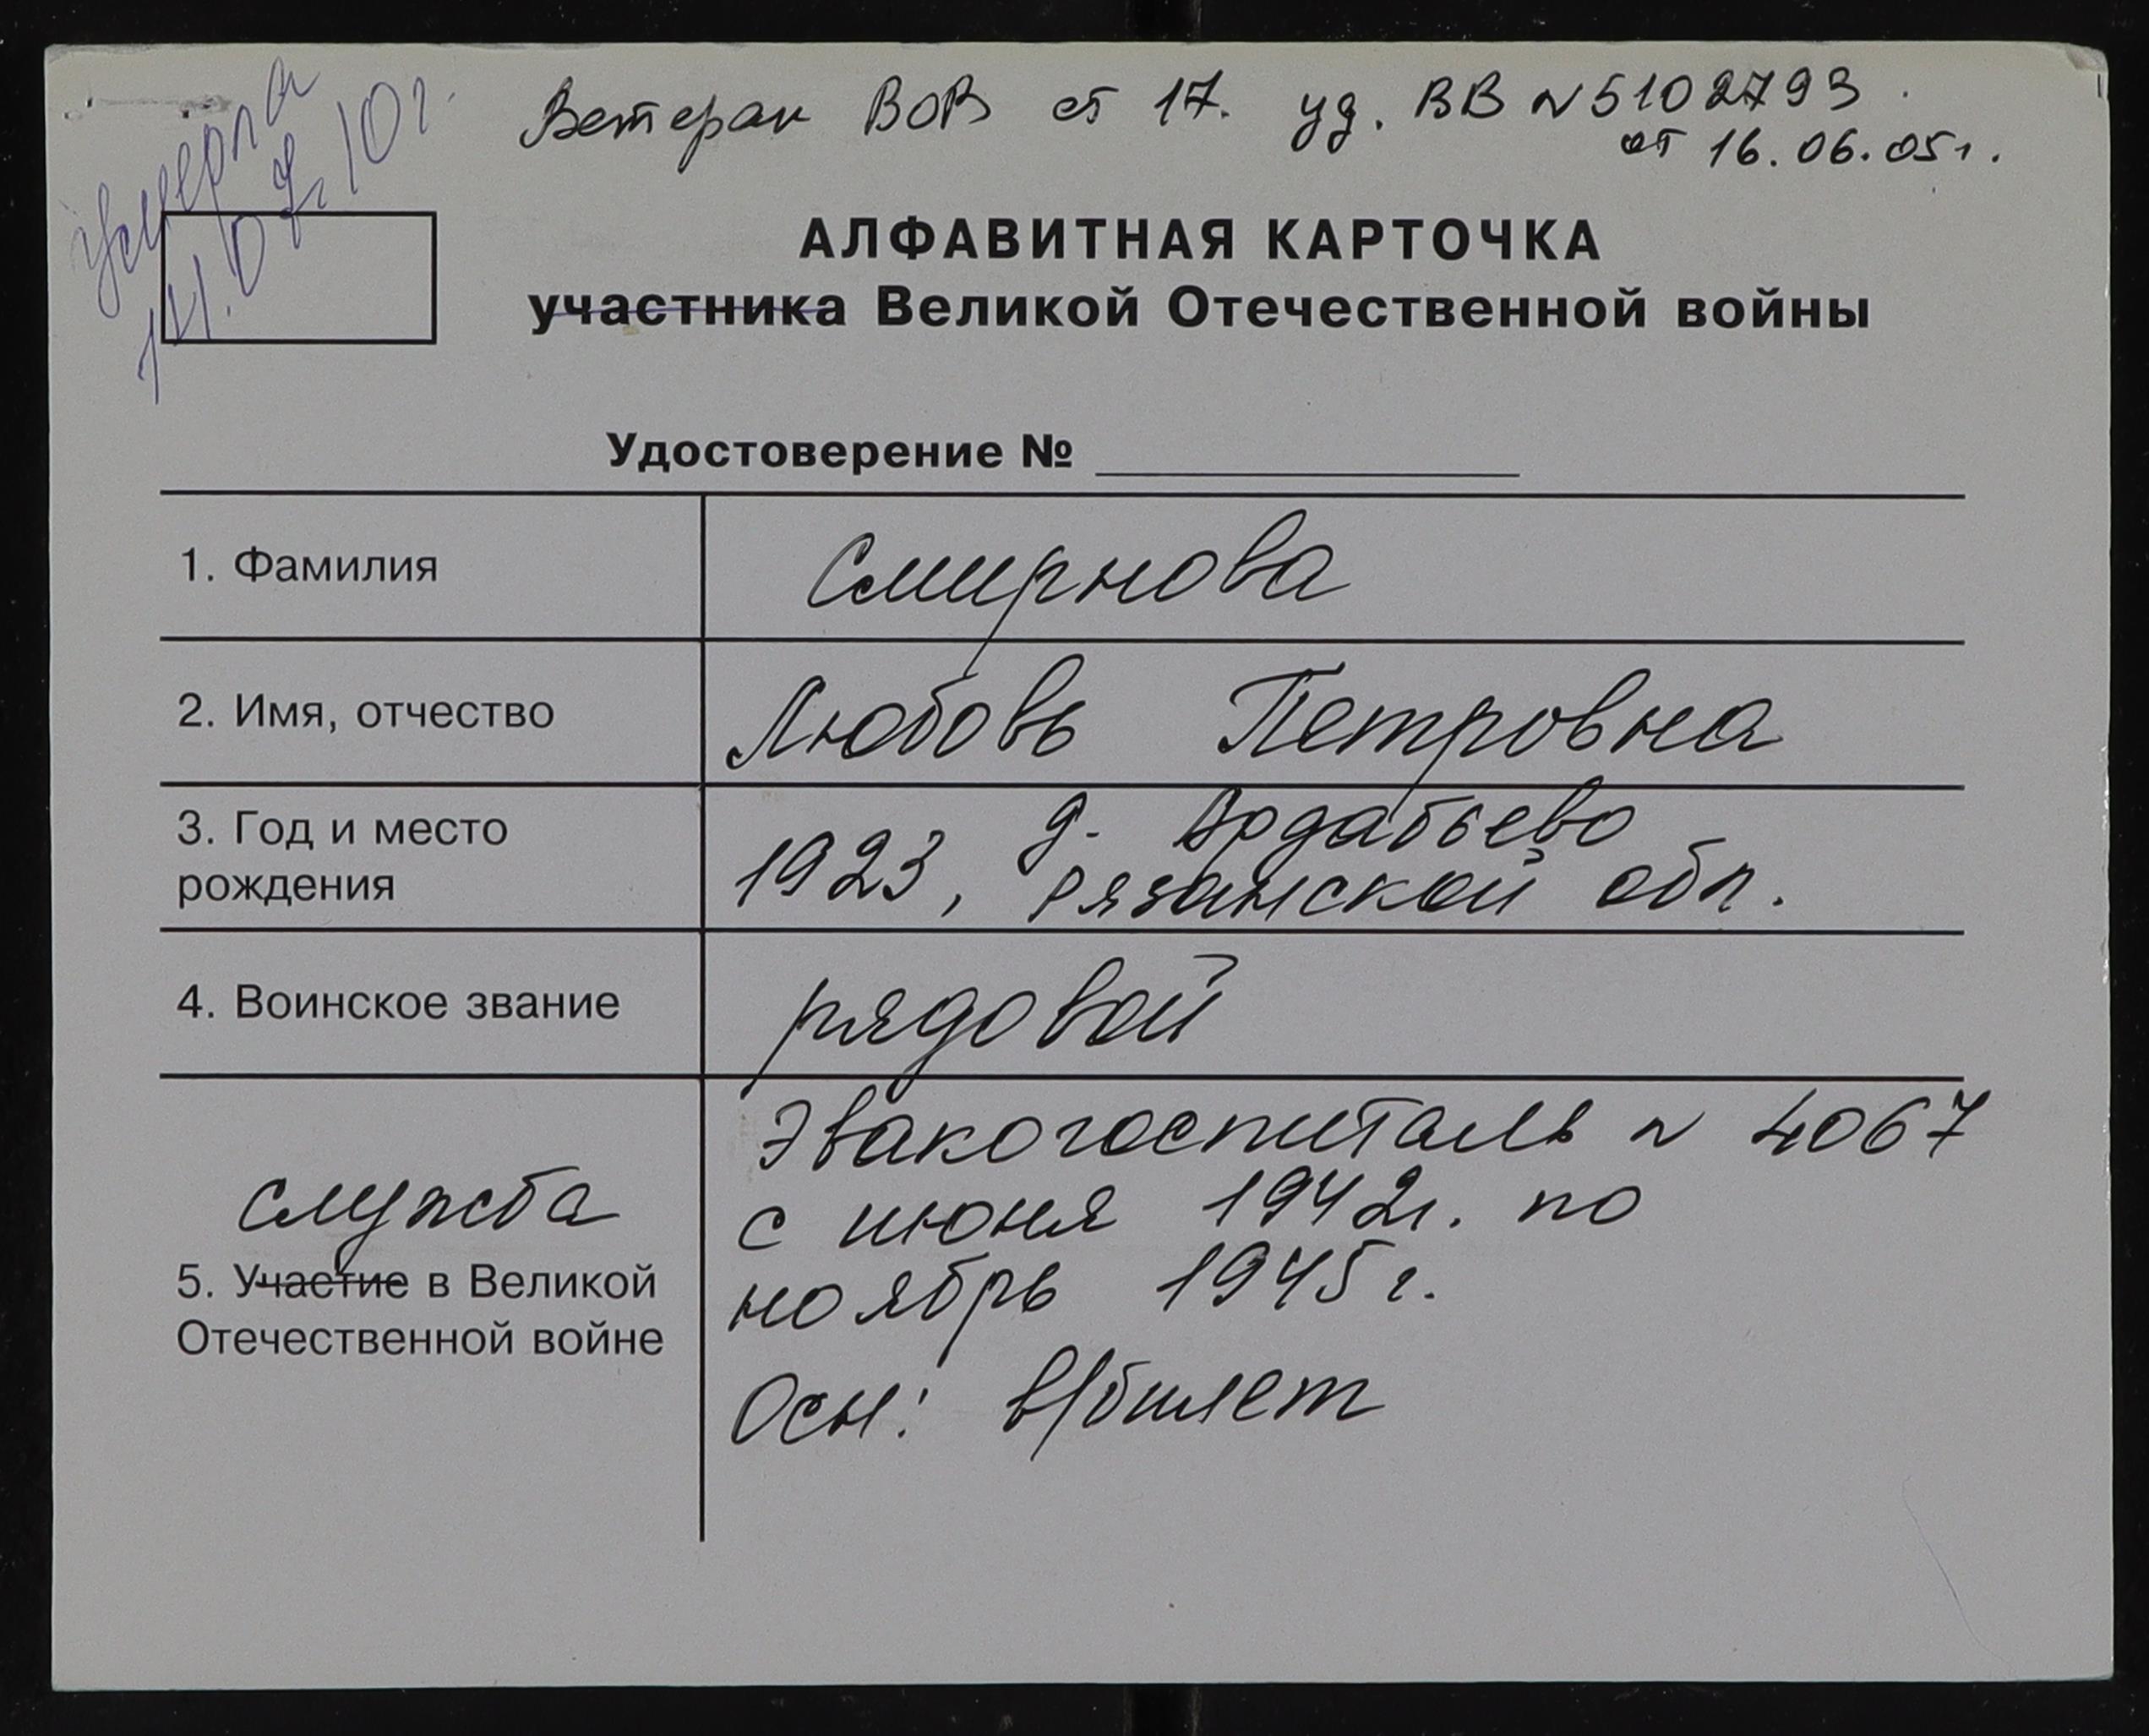 умерла
Ветеран ВОВ ст 17. уд. ВВ №5102793.
от 16.06.05г.
АЛФАВИТНАЯ КАРТОЧКА
участника Великой Отечественной войны
Удостоверение №
1. Фамилия
Смирнова
2. Имя, отчество
Любовь Петровна
3. Год и место рождения
1923, д. Ардабьево
Рязанской обл.
4. Воинское звание
рядовой
служба
5. Участие в Великой
Отечественной войне
Эвакогоспиталь № 4067
с июня 1942г. по
ноябрь 1945г.
Осн: в/билет